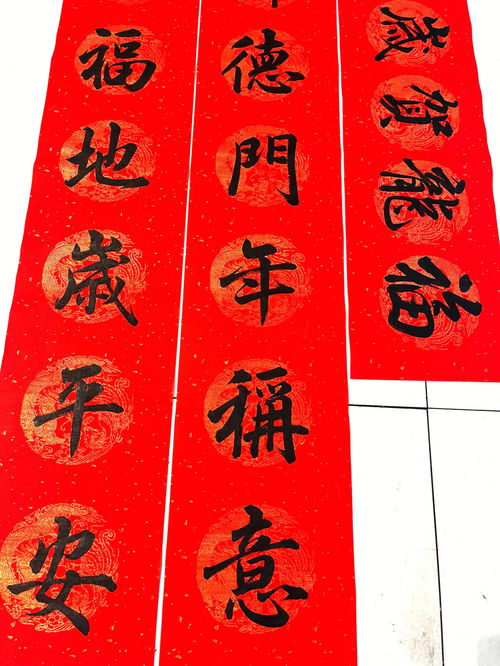 德門年稱意
福地歲平安
福龍賀歲